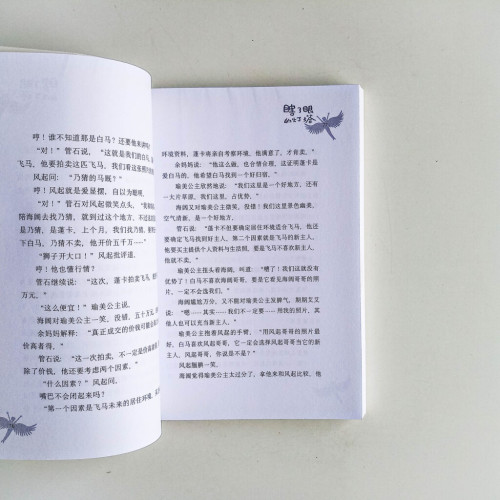 哼！谁不知道那是白马？还要他来讲吗？
“对！”管石说，“这就是我们的白马
飞马，他要拍卖这匹飞马，我们看这座
风起问：“乃猜的马厩？”
哼！风起就是爱显摆，自以为聪明。
“对！”管石对风起微笑点头，“我们
陪海阔去找乃猜，就到过这个地方，不过
是乃猜，是蓬卡，上个月，我们找乃猜，
下白马，乃猜不卖，他开价五千万……
“狮子开大口！”风起批评道。
哼！他也懂行情？
管石继续说：“这次，蓬卡拍卖飞马，
万元。”
“这么便宜！”瑜美公主说。
海阔对瑜美公主一笑，没错，五十万元，
余妈妈解释：“真正成交的价钱可能会
价高者得。”
管石说：“这一次拍卖，不一定是价高
除了价钱，他还要考虑两个因素。”
“什么因素？”风起问。
嘴巴不会闭起来吗？
“第一个因素是飞马未来的居住环境，
瞎了眼
的好塔
环境资料，蓬卡将亲自考察环境，他满意了，才肯卖。”
余妈妈说：“他这么做，也合情合理，这证明蓬卡是
爱白马的，他希望白马找到一个好归宿。”
瑜美公主欣然地说：“我们这里是一个好地方，还有
一大片草原，我们这里，占优势。”
海阔又对瑜美公主微笑，很借！我们这里景色幽美，
空气清新，是一个好地方。
管石说：“蓬卡不但要确定居住环境适合飞马，他还
要确定飞马找到好主人，第二个因素就是飞马的新主人，
他要买主提供个人资料与生活照，要是飞马不喜欢新主人，
他就不卖。”
瑜美公主扭头看海阔，叫道：“嘈了！我们这就没有
优势了！白马不喜欢海阔哥哥，要是它看见海阔哥哥的照
片，一定不会选我们。”
海阔尴尬万分，又不能对瑜美公主发脾气，期期艾艾
说：“嗯……其实……我们不一定要……用我的照片，其
他人也可以充当新主人。”
瑜美公主抱着风起的手臂：“用风起哥哥的照片最
好，白马喜欢风起哥哥，它一定会选择风起哥哥当它的新
主人，风起哥哥，你说是不是？”
风起腼腆一笑。
海阔觉得瑜美公主太过分了，拿他来和风起比较，他